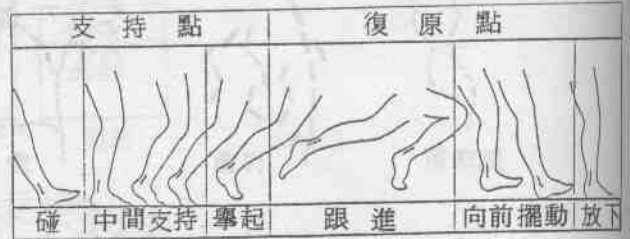 支持點 復原點
碰 中間支持 舉起 跟進 向前擺動 放下